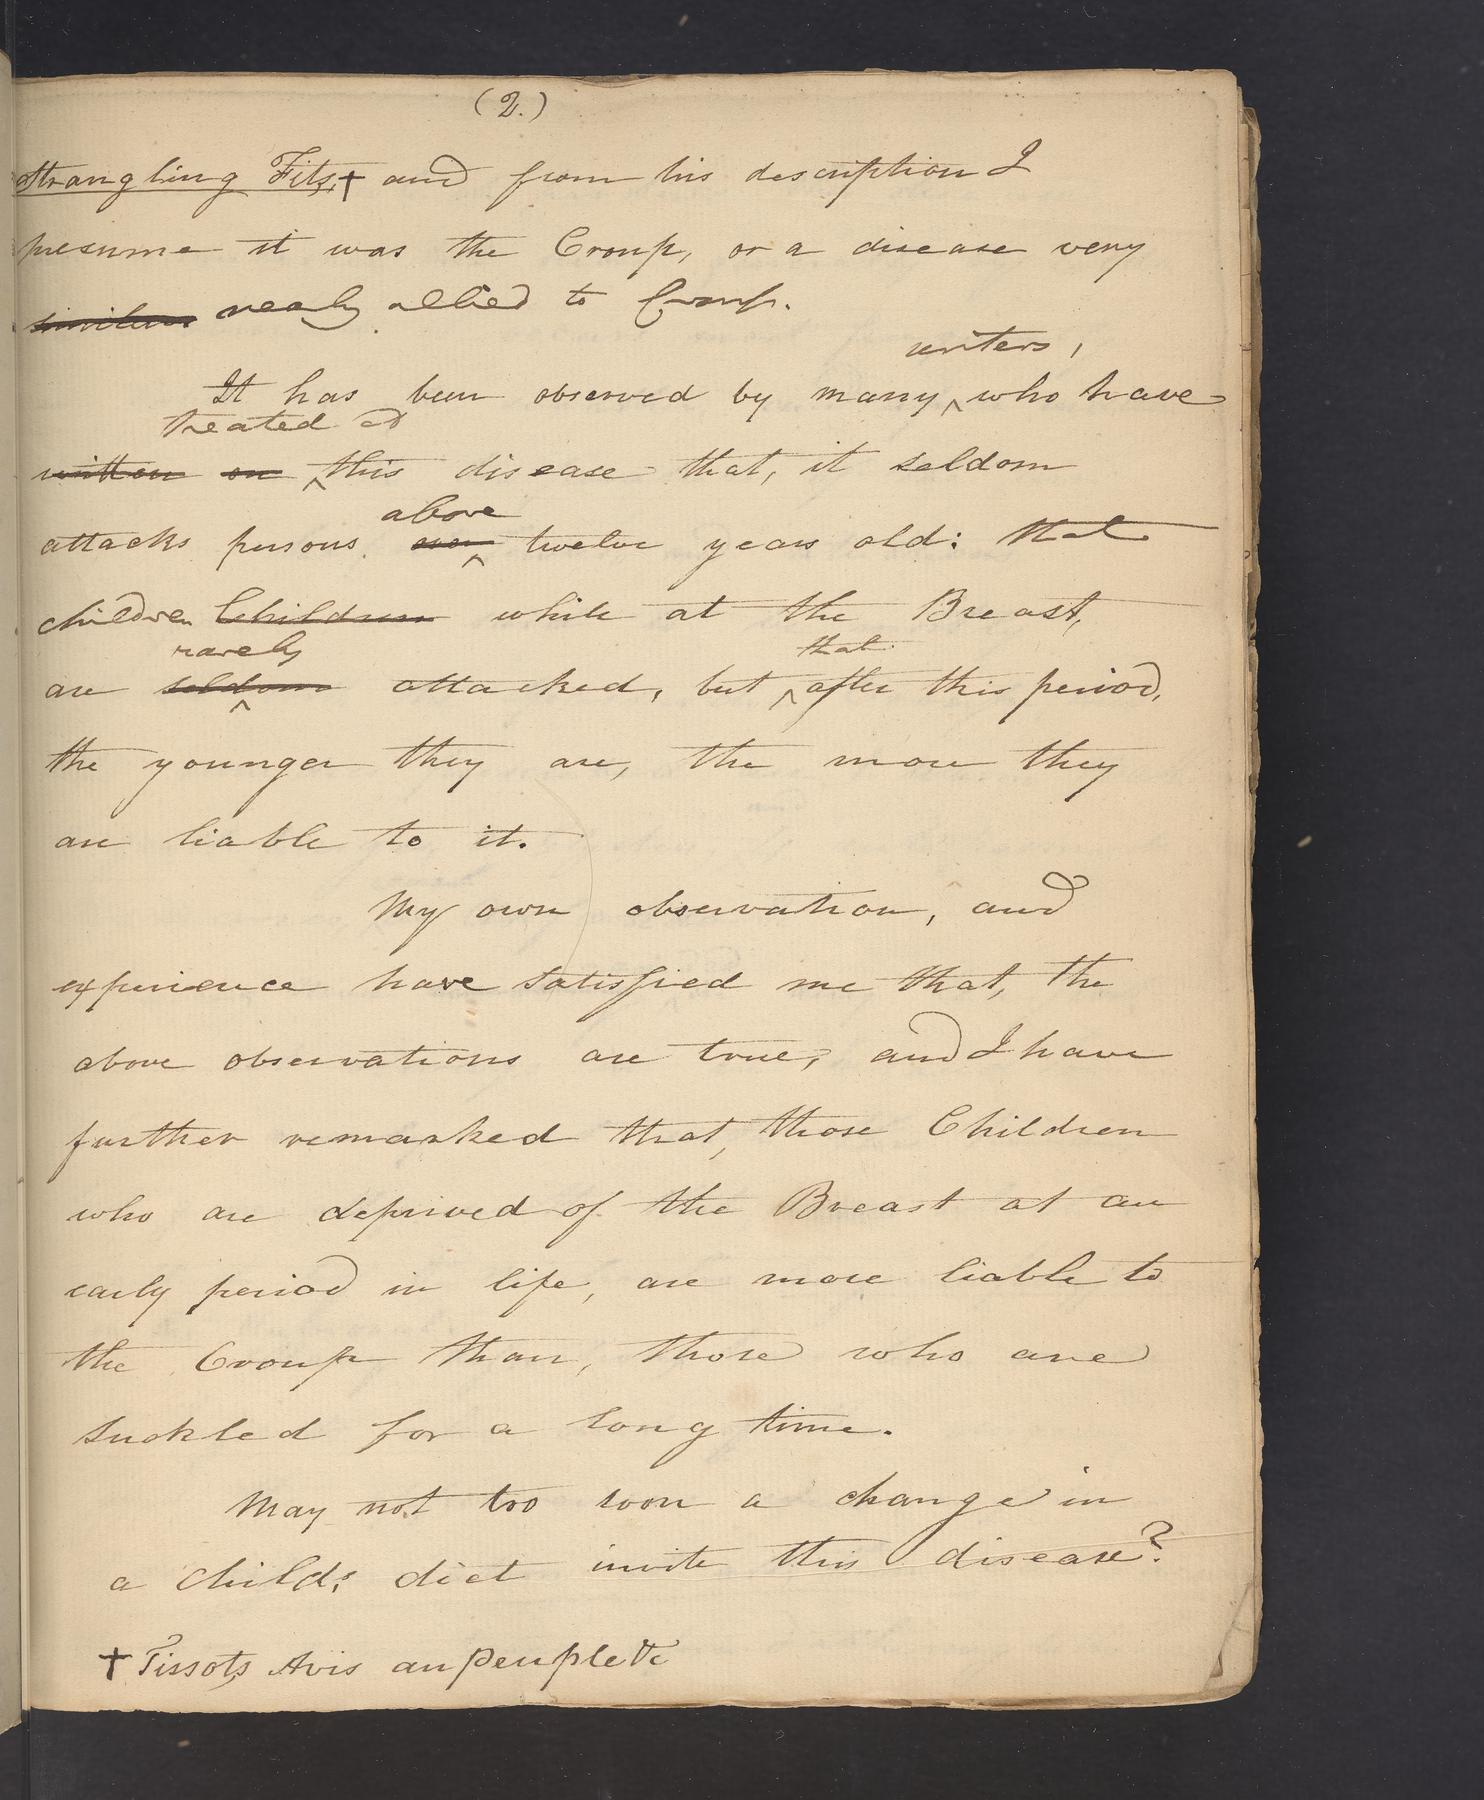 (2.)
strangling Fits,† and from his description I
presume it was the Croup, or a disease very
similar nearly allied to Croup.
writers,
It has been observed by many ^ who have
treated
written on ^ this disease that, it seldom
above
attacks persons over ^ twelve years old: that
children Children while at the Breast,
rarely that
are seldom ^ attacked, but ^ after this period,
the younger they are, the more they
are liable to it.
My own observation, and
experience have satisfied me that, the
above observations are true, and I have
further remarked that, those Children
who are deprived of the Breast at an
early period in life, are more liable to
the Croup than, those who are
suckled for a long time.
May not too soon a change in
a child's diet invite this disease?
† Tissots Avis au peuple &c